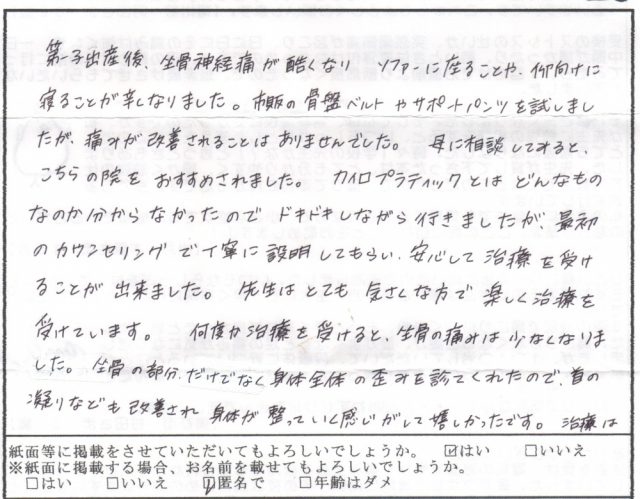 第一子出産後、坐骨神経痛が酷くなり ソファーに座ることや、仰向けに
寝ることが辛くなりました。市販の骨盤ベルトやサポートパンツを試しまし
たが、痛みが改善されることはありませんでした。 母に相談してみると、
こちらの院をおすすめされました。 カイロプラティックとはどんなもの
なのか分からなかったのでドキドキしながら行きましたが、最初
のカウンセリングで丁寧に説明してもらい、安心して治療を受け
ることが出来ました。 先生はとても気さくな方で楽しく治療を
受けています。 何度か治療を受けると、坐骨の痛みは少なくなりま
した。坐骨の部分だけでなく身体全体の歪みを診てくれたので、首の
凝りなども改善され身体が整っていく感じがして嬉しかったです。 治療は
紙面等に掲載をさせていただいてもよろしいでしょうか。 ☑はい □いいえ
※紙面に掲載する場合、お名前を載せてもよろしいでしょうか。
□はい □いいえ ☑匿名で □年齢はダメ